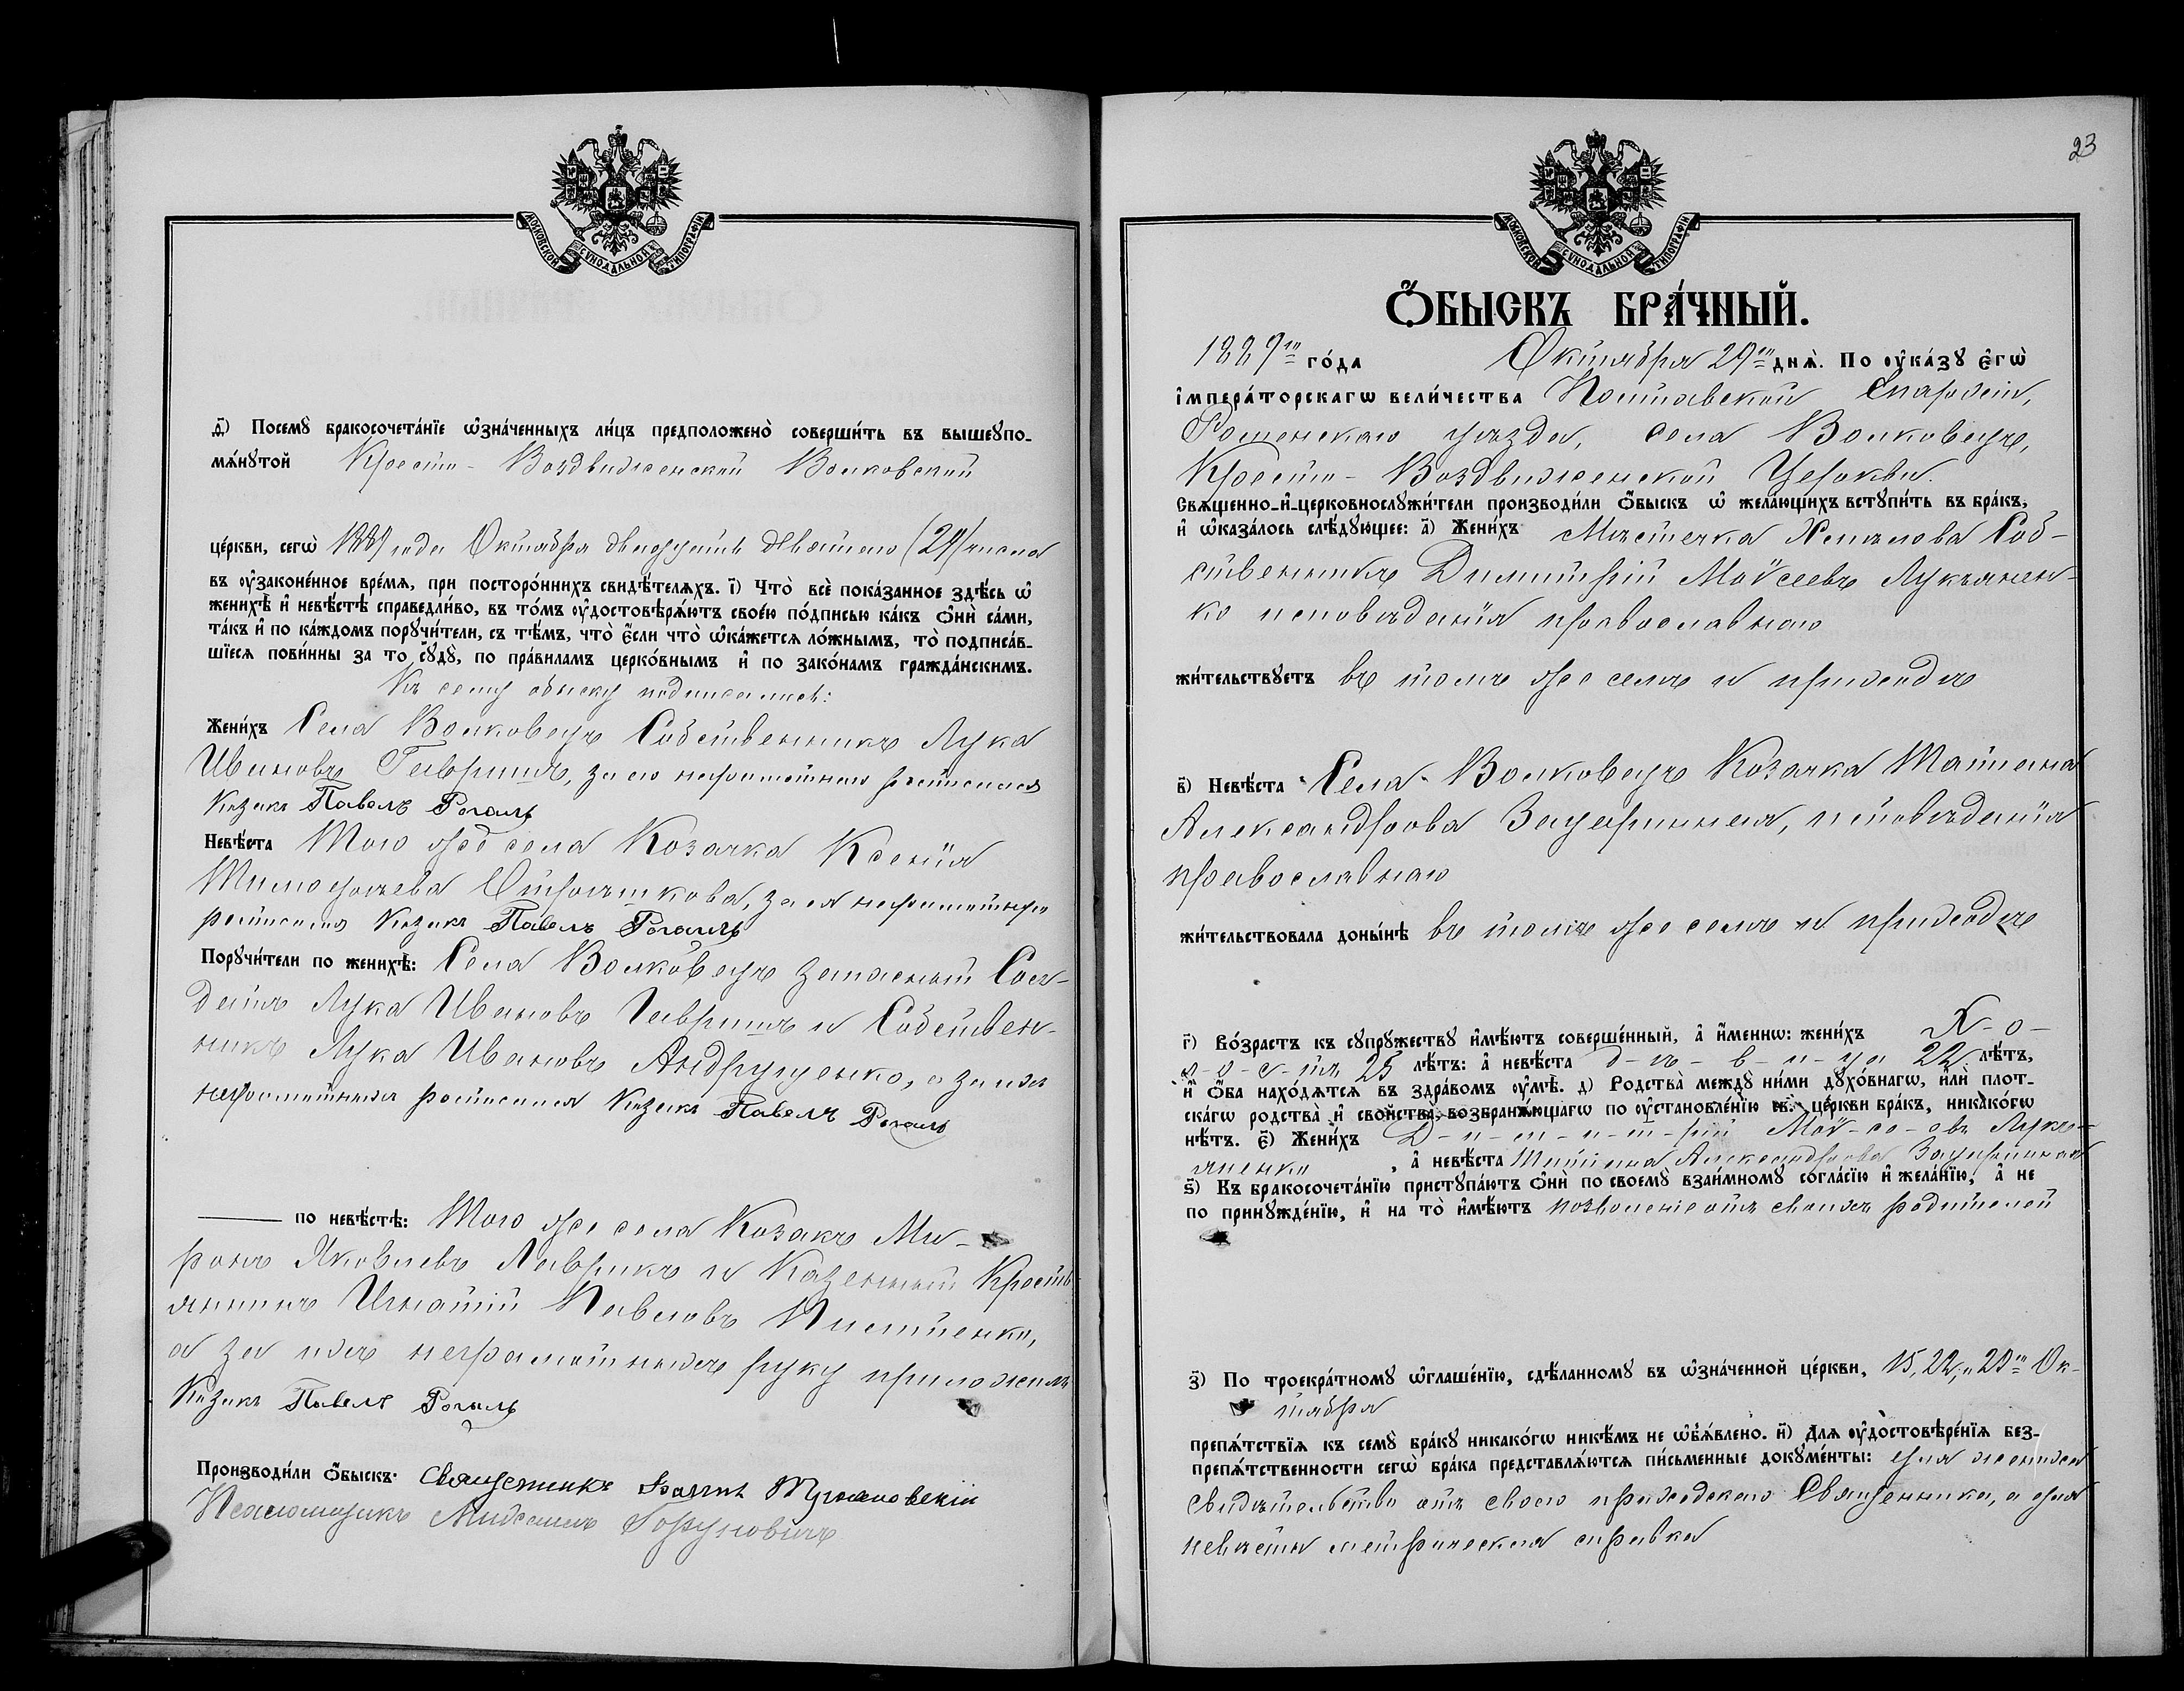 МОСКОВСКОЙ СѴНОДАЛЬНОЙ ТИПОГРАФІИ
д҃і) Посемꙋ̀ бракосочета́нїе ѡ҆зна́ченныхъ ли́цъ предположено̀ соверши́ть въ вышеꙋпо-
мѧ́нꙋтой Кресто-Воздвиженской Волковской
це́ркви, сегѡ̀ 1889 года Октября двадцать девятого (29) числа
въ ᲂу҆зако́ненное вре́мѧ, при посторо́ннихъ свидѣ́телѧхъ. і҃) Что̀ всѐ пока́занное здѣ́сь ѡ҆
женихѣ̀ и҆ невѣ́стѣ справедли́во, въ то́мъ ᲂу҆достовѣрѧ́ютъ свое́ю по́дписью ка́къ ѻ҆нѝ са́ми,
та́къ и҆ по ка́ждомъ порꙋчи́тели, съ тѣ́мъ, что̀ є҆́сли что̀ ѡ҆ка́жется ло́жнымъ, то̀ подписа́в-
шїеся пови́нны за то сꙋдꙋ̀, по пра́виламъ церко́внымъ и҆ по зако́намъ гражда́нскимъ.
Къ сему обыску подписались:
Жени́хъ Села Волковецъ Собственникъ Лука
Ивановъ Гавришъ, за его неграмотного росписался
Козакъ Павелъ Рогаль
Невѣ́ста Того же села Козачка Ксенія
Тимофѣева за ея неграмотную
росписался Козакъ Павелъ Рогаль
Порꙋчи́тели по женихѣ̀: Села Волковецъ запасный Сол-
датъ Лука Ивановъ Гавришъ и Собствен-
никъ Лука Ивановъ Андрущенко, а за ихъ
неграмотныхъ росписался Козакъ Павелъ Рогаль
по невѣ́стѣ: Того же села Козакъ Ми-
ронъ Яковлевъ Лаврикъ и Казенный Кресть-
янинъ Игнатій Павловъ
а за ихъ неграмотныхъ руку приложилъ
Козакъ Павелъ Рогаль
Производи́ли ѻ҆́быскъ: Священникъ Іоаннъ
Псаломщикъ Михаилъ
23
МОСКОВСКОЙ СѴНОДАЛЬНОЙ ТИПОГРАФІИ
Ѻ҆́БЫСКЪ БРА́ЧНЫЙ.
1889го го́да Октября 29го днѧ̀. По ᲂу҆ка́зꙋ є҆гѡ̀
і҆мпера́торскагѡ вели́чества Полтавской Епархіи,
Роменскаго уѣзда, села Волковецъ,
Кресто-Воздвиженской Церкви.
Свѧще́нно-и҆-церковнослꙋжи́тели производи́ли ѻ҆́быскъ ѡ҆ жела́ющихъ встꙋпи́ть въ бра́къ,
и҆ ѡ҆каза́лось слѣ́дꙋющее: а҃) Жени́хъ Мѣстечка Хмѣлова Соб-
ственникъ Димитрій Моѵсеевъ Лукьянен-
ко исповѣданія православнаго
жи́тельствꙋетъ въ томъ же селѣ и приходѣ
в҃) Невѣ́ста Села Волковецъ Козачка Татіана
Александрова исповѣданія
православнаго
жи́тельствовала доны́нѣ въ томъ же селѣ и приходѣ
г҃) Во́зрастъ къ сꙋпрꙋ́жествꙋ и҆мѣ́ютъ соверше́нный, а҆ и҆́меннѡ: жени́хъ Х-о-
л-о-с-тъ 25 лѣ́тъ: а҆ невѣ́ста д-ѣ-в-и-ца 22 лѣ́тъ,
и҆ ѻ҆́ба нахо́дѧтся въ здра́вомъ ᲂу҆мѣ̀. д҃) Родства̀ междꙋ̀ ни́ми дꙋхо́внагѡ, и҆лѝ плот-
ска́гѡ родства̀ и҆ свойства̀, возбранѧ́ющагѡ по ᲂу҆становле́нїю св. це́ркви бра́къ, никако́гѡ
нѣ́тъ. є҃) Жени́хъ Д-и-м-и-т-рій Моѵ-се-евъ Лукь-
яненко, а҆ невѣ́ста Татіана Александрова
ѕ҃) Къ бракосочета́нїю пристꙋпа́ютъ ѻ҆нѝ по своемꙋ̀ взаи́мномꙋ согла́сїю и҆ жела́нїю, а҆ не
по принꙋжде́нїю, и҆ на то̀ и҆мѣ́ютъ позволеніе отъ своихъ родителей
з҃) По троекра́тномꙋ ѡ҆глаше́нїю, сдѣ́ланномꙋ въ ѡ҆зна́ченной це́ркви, 15, 22, и 29го Ок-
тября
препѧ́тствїя къ семꙋ̀ бра́кꙋ никако́гѡ никѣ́мъ не ѡ҆б̾ѧ́влено. и҃) Для ᲂу҆достовѣре́нїя без-
препѧ́тственности сегѡ̀ бра́ка представлѧ́ются пи́сьменные докꙋме́нты: для жениха
свидѣтельство отъ своего приходскаго Священника, а для
невѣсты метрическая справка